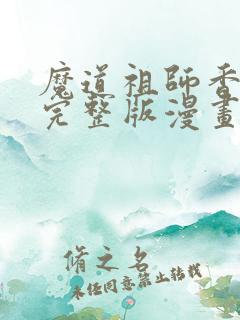 魔道祖師香
完整版漫畫
脩之名
未经同意禁止转载